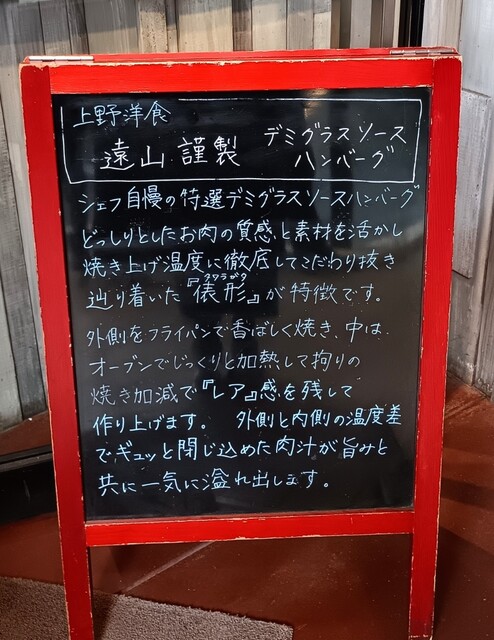 上野洋食
遠山謹製 デミグラスソース
ハンバーグ
シェフ自慢の特選デミグラスソースハンバーグ
どっしりとしたお肉の質感と素材を活かし
焼き上げ温度に徹底してこだわり抜き
タワラガタ
辿り着いた『俵形』が特徴です。
外側をフライパンで香ばしく焼き、中は
オーブンでじっくりと加熱して拘りの
焼き加減で『レア』感を残して
作り上げます。 外側と内側の温度差
でギュッと閉じ込めた肉汁が旨みと
共に一気に溢れ出します。